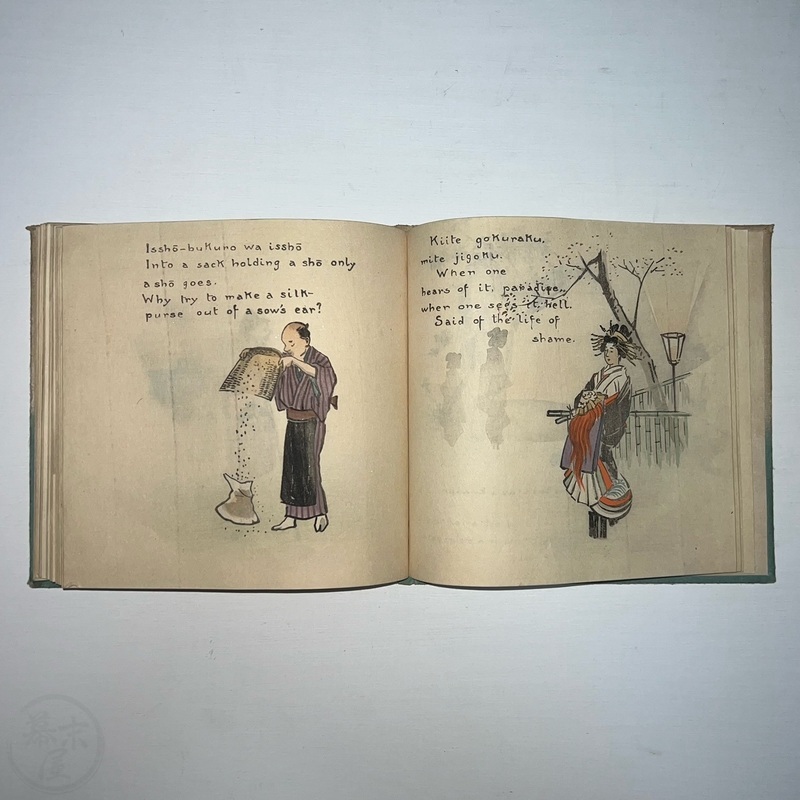 Isshō-bukuro wa isshō
Into a sack holding a shō only
a shō goes.
Why try to make a silk-
purse out of a sow's ear?
Kiite gokuraku,
mite jigoku.
When one
hears of it, paradise,
when one sees it hell.
Said of the life of
shame.
幕末
屋